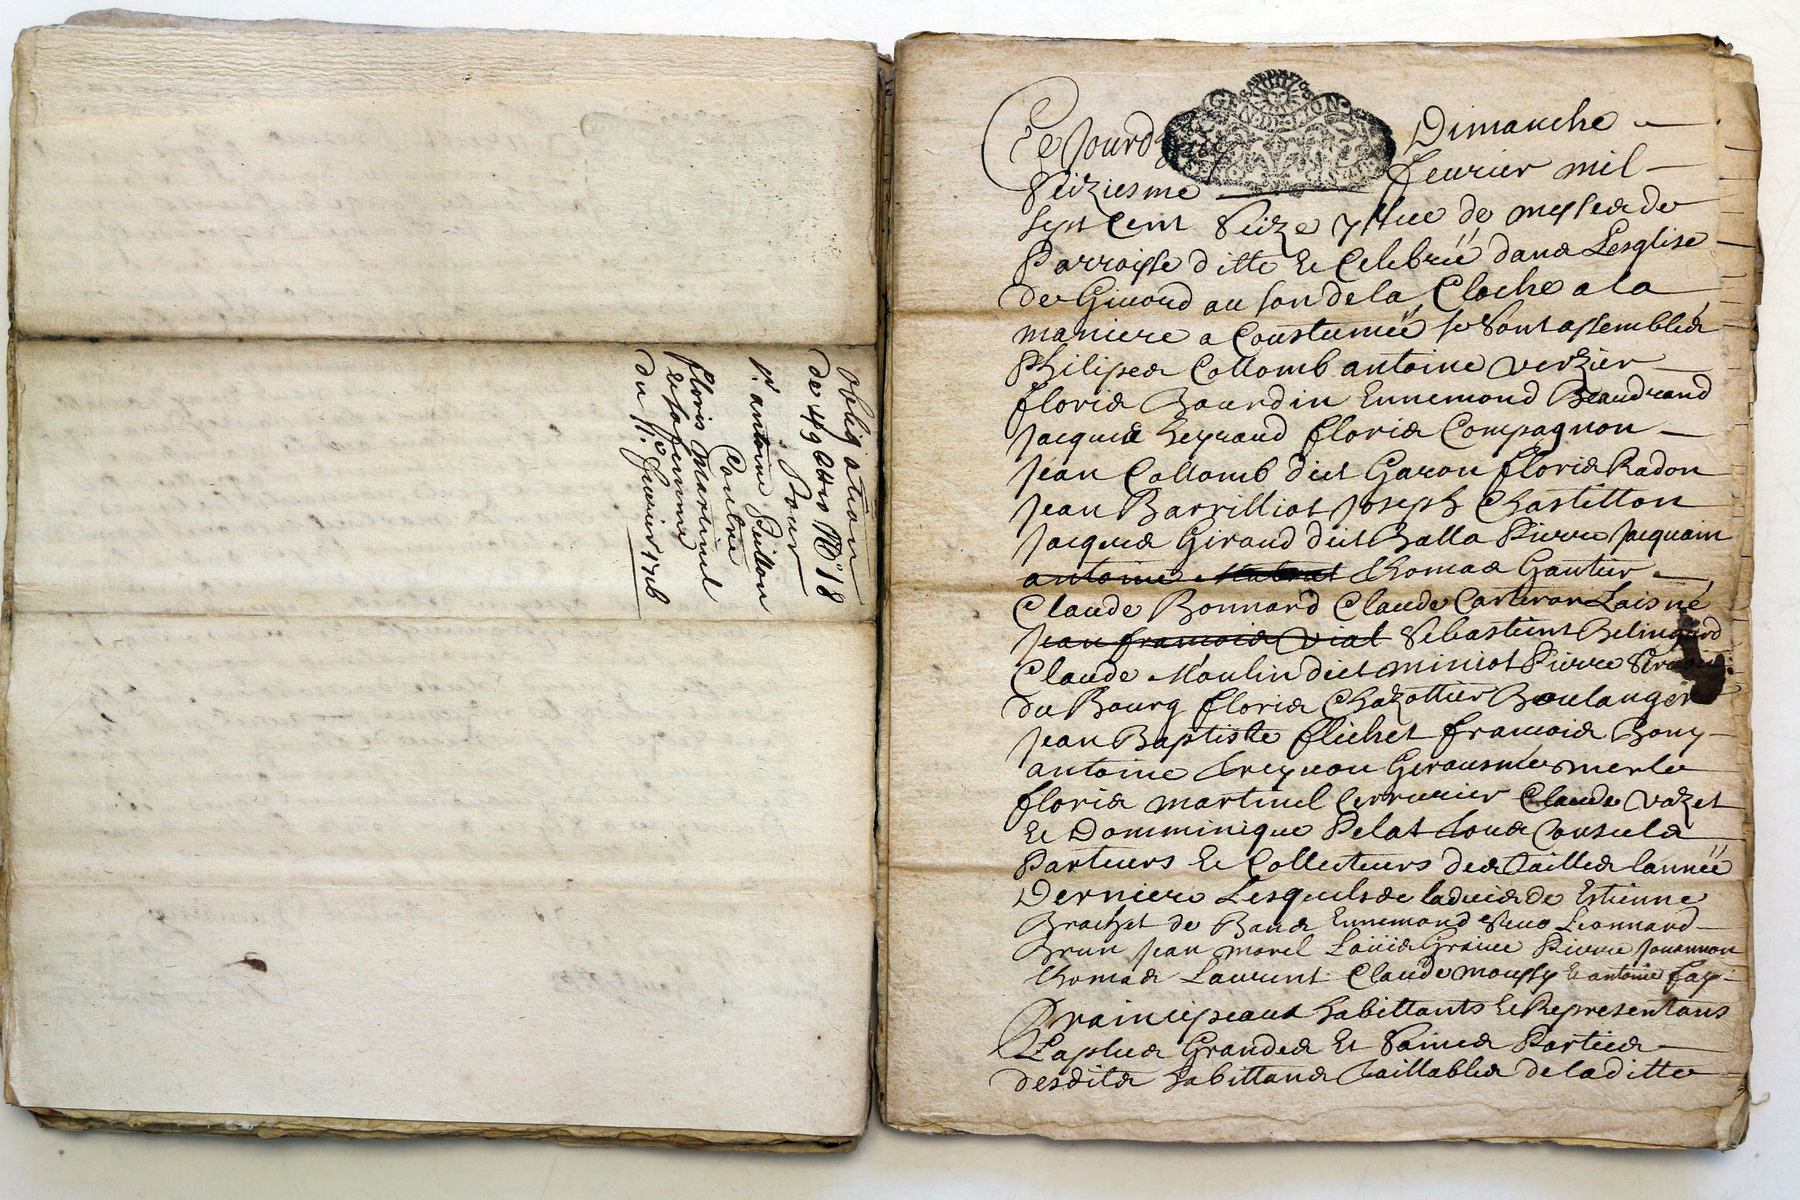 obligation
de 49 # 18
pour
sr antoine Guillon
Contre
floris Martinel
& sa femme
du 11e feurier 1716
GENERA LION
Ce Jourdhuy Dimanche
Seiziesme feurier mil
sept Cent Seize yssue de messes de
Parroisse ditte Et Celebrée dans Lesglise
de Giuord au son de la Cloche a la
maniere a Coustumée se sont assemblés
Philipes Collomb antoine verzier
floris Bourdin Ennemond Beaudrand
Jacques heyraud floris Compagnon
Jean Collomb dict Garon floris Radon
Jean Barrilliot Joseph Chastillon
Jacques Giraud dict Balla Pierre Jacquain
antoine Thomas Gautier
Claude Bonnard Claude Carteron Laisné
Jean francois vial Sebastient
Claude Moulin dict miniot Pierre
du Bourg floris Chazottier Boulanger
Jean Baptiste flichet francois Bony
antoine Geraasme merle
floris martinel Cerrurier Claude vazet
Et Domminique Pelat tous Consuls
Parteurs Et Collecteurs des Tailles lannée
Derniere Lesquels de de Estienne
Brachet de Bans Ennemond Leonnard
Brun Jean morel Loüis Pierre Jouannon
thomas Laurent Claude moussy Et antoine fay
Principeaux habittants Et Representans
La plus Grandes Et Saines Parties
desdits habittans Taillables de laditte